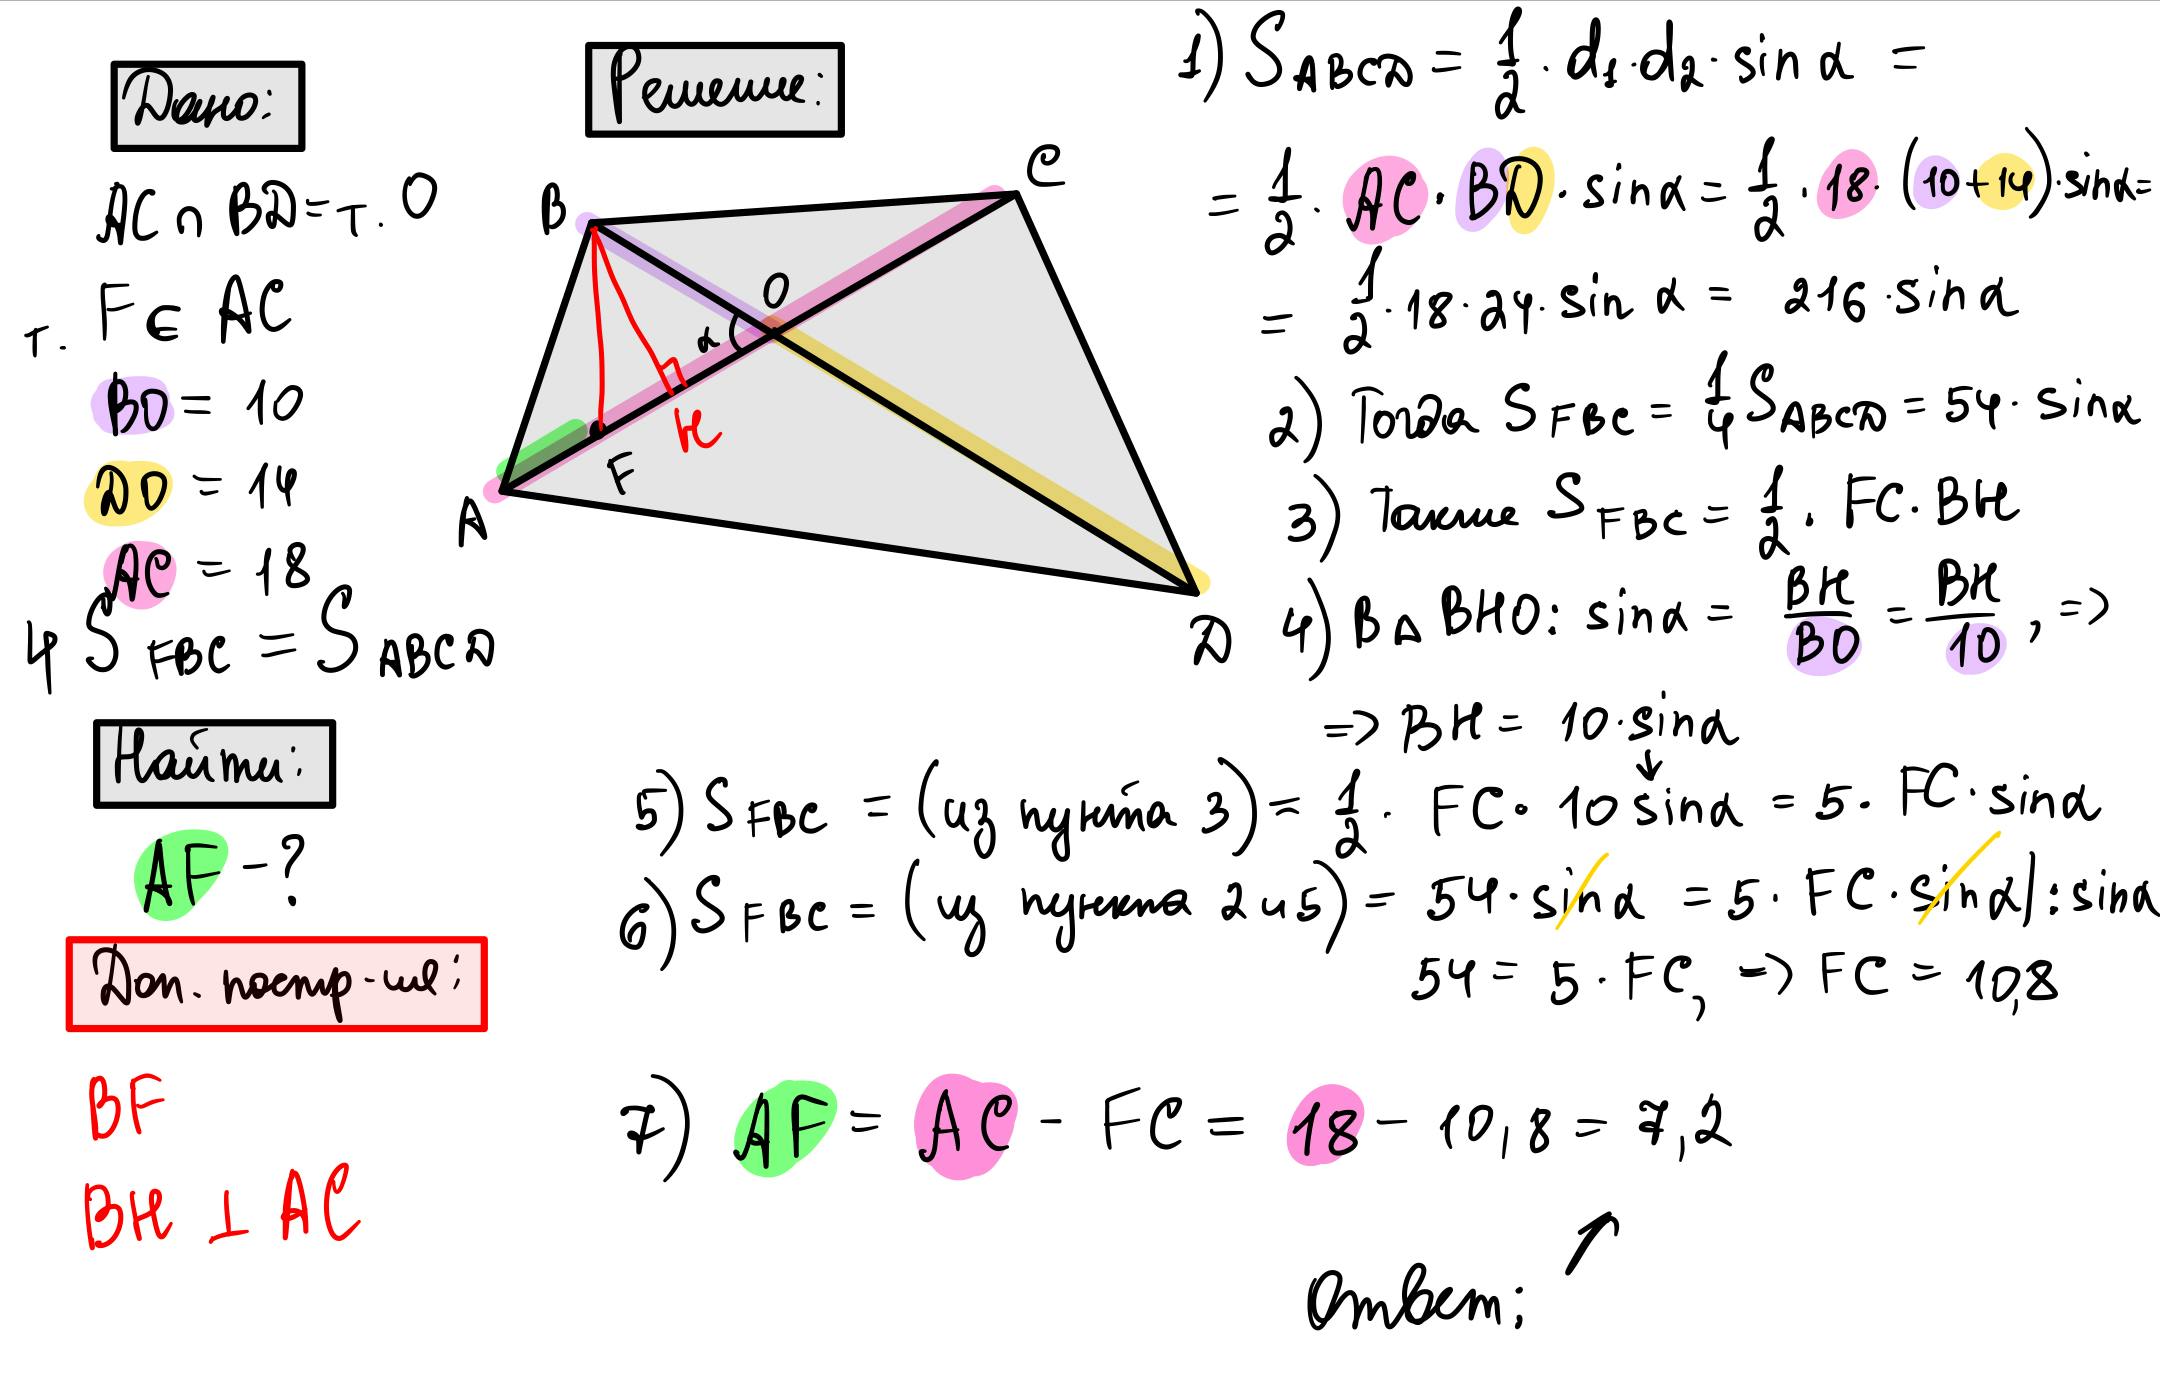 Дано:
AC ∩ BD = т. O
т. F ∈ AC
BO = 10
DO = 14
AC = 18
4 S FBC = S ABCD
Найти:
AF - ?
Доп. постр-ие:
BF
BH ⊥ AC
Решение:
B
C
O
α
H
F
A
D
1) S ABCD = 1/2 · d₁ · d₂ · sin α =
= 1/2 · AC · BD · sin α = 1/2 · 18 · (10+14) · sin α =
= 1/2 · 18 · 24 · sin α = 216 · sin α
2) Тогда S FBC = 1/4 S ABCD = 54 · sin α
3) Также S FBC = 1/2 · FC · BH
4) В △ BHO: sin α = BH/BO = BH/10 , =>
=> BH = 10 · sin α
5) S FBC = (из пункта 3) = 1/2 · FC · 10 sin α = 5 · FC · sin α
6) S FBC = (из пункта 2 и 5) = 54 · sin α = 5 · FC · sin α |: sin α
54 = 5 · FC, => FC = 10,8
7) AF = AC - FC = 18 - 10,8 = 7,2
Ответ: